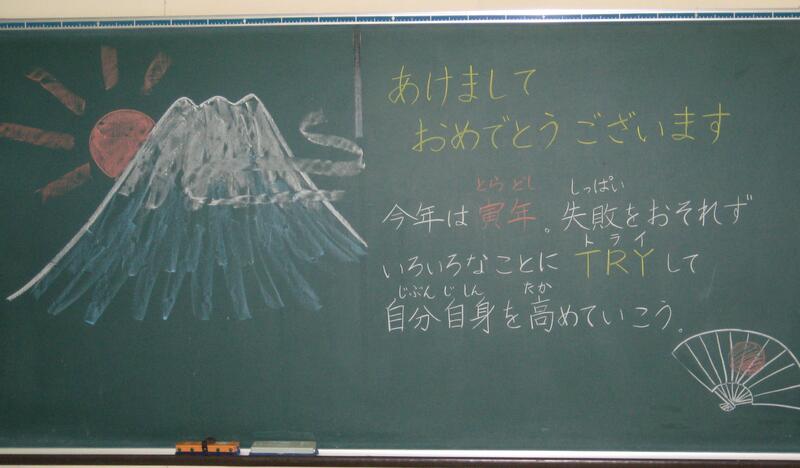 あけまして
おめでとうございます
とらどし しっぱい
今年は寅年。失敗をおそれず
トライ
いろいろなことにTRYして
じぶんじしん たか
自分自身を高めていこう。